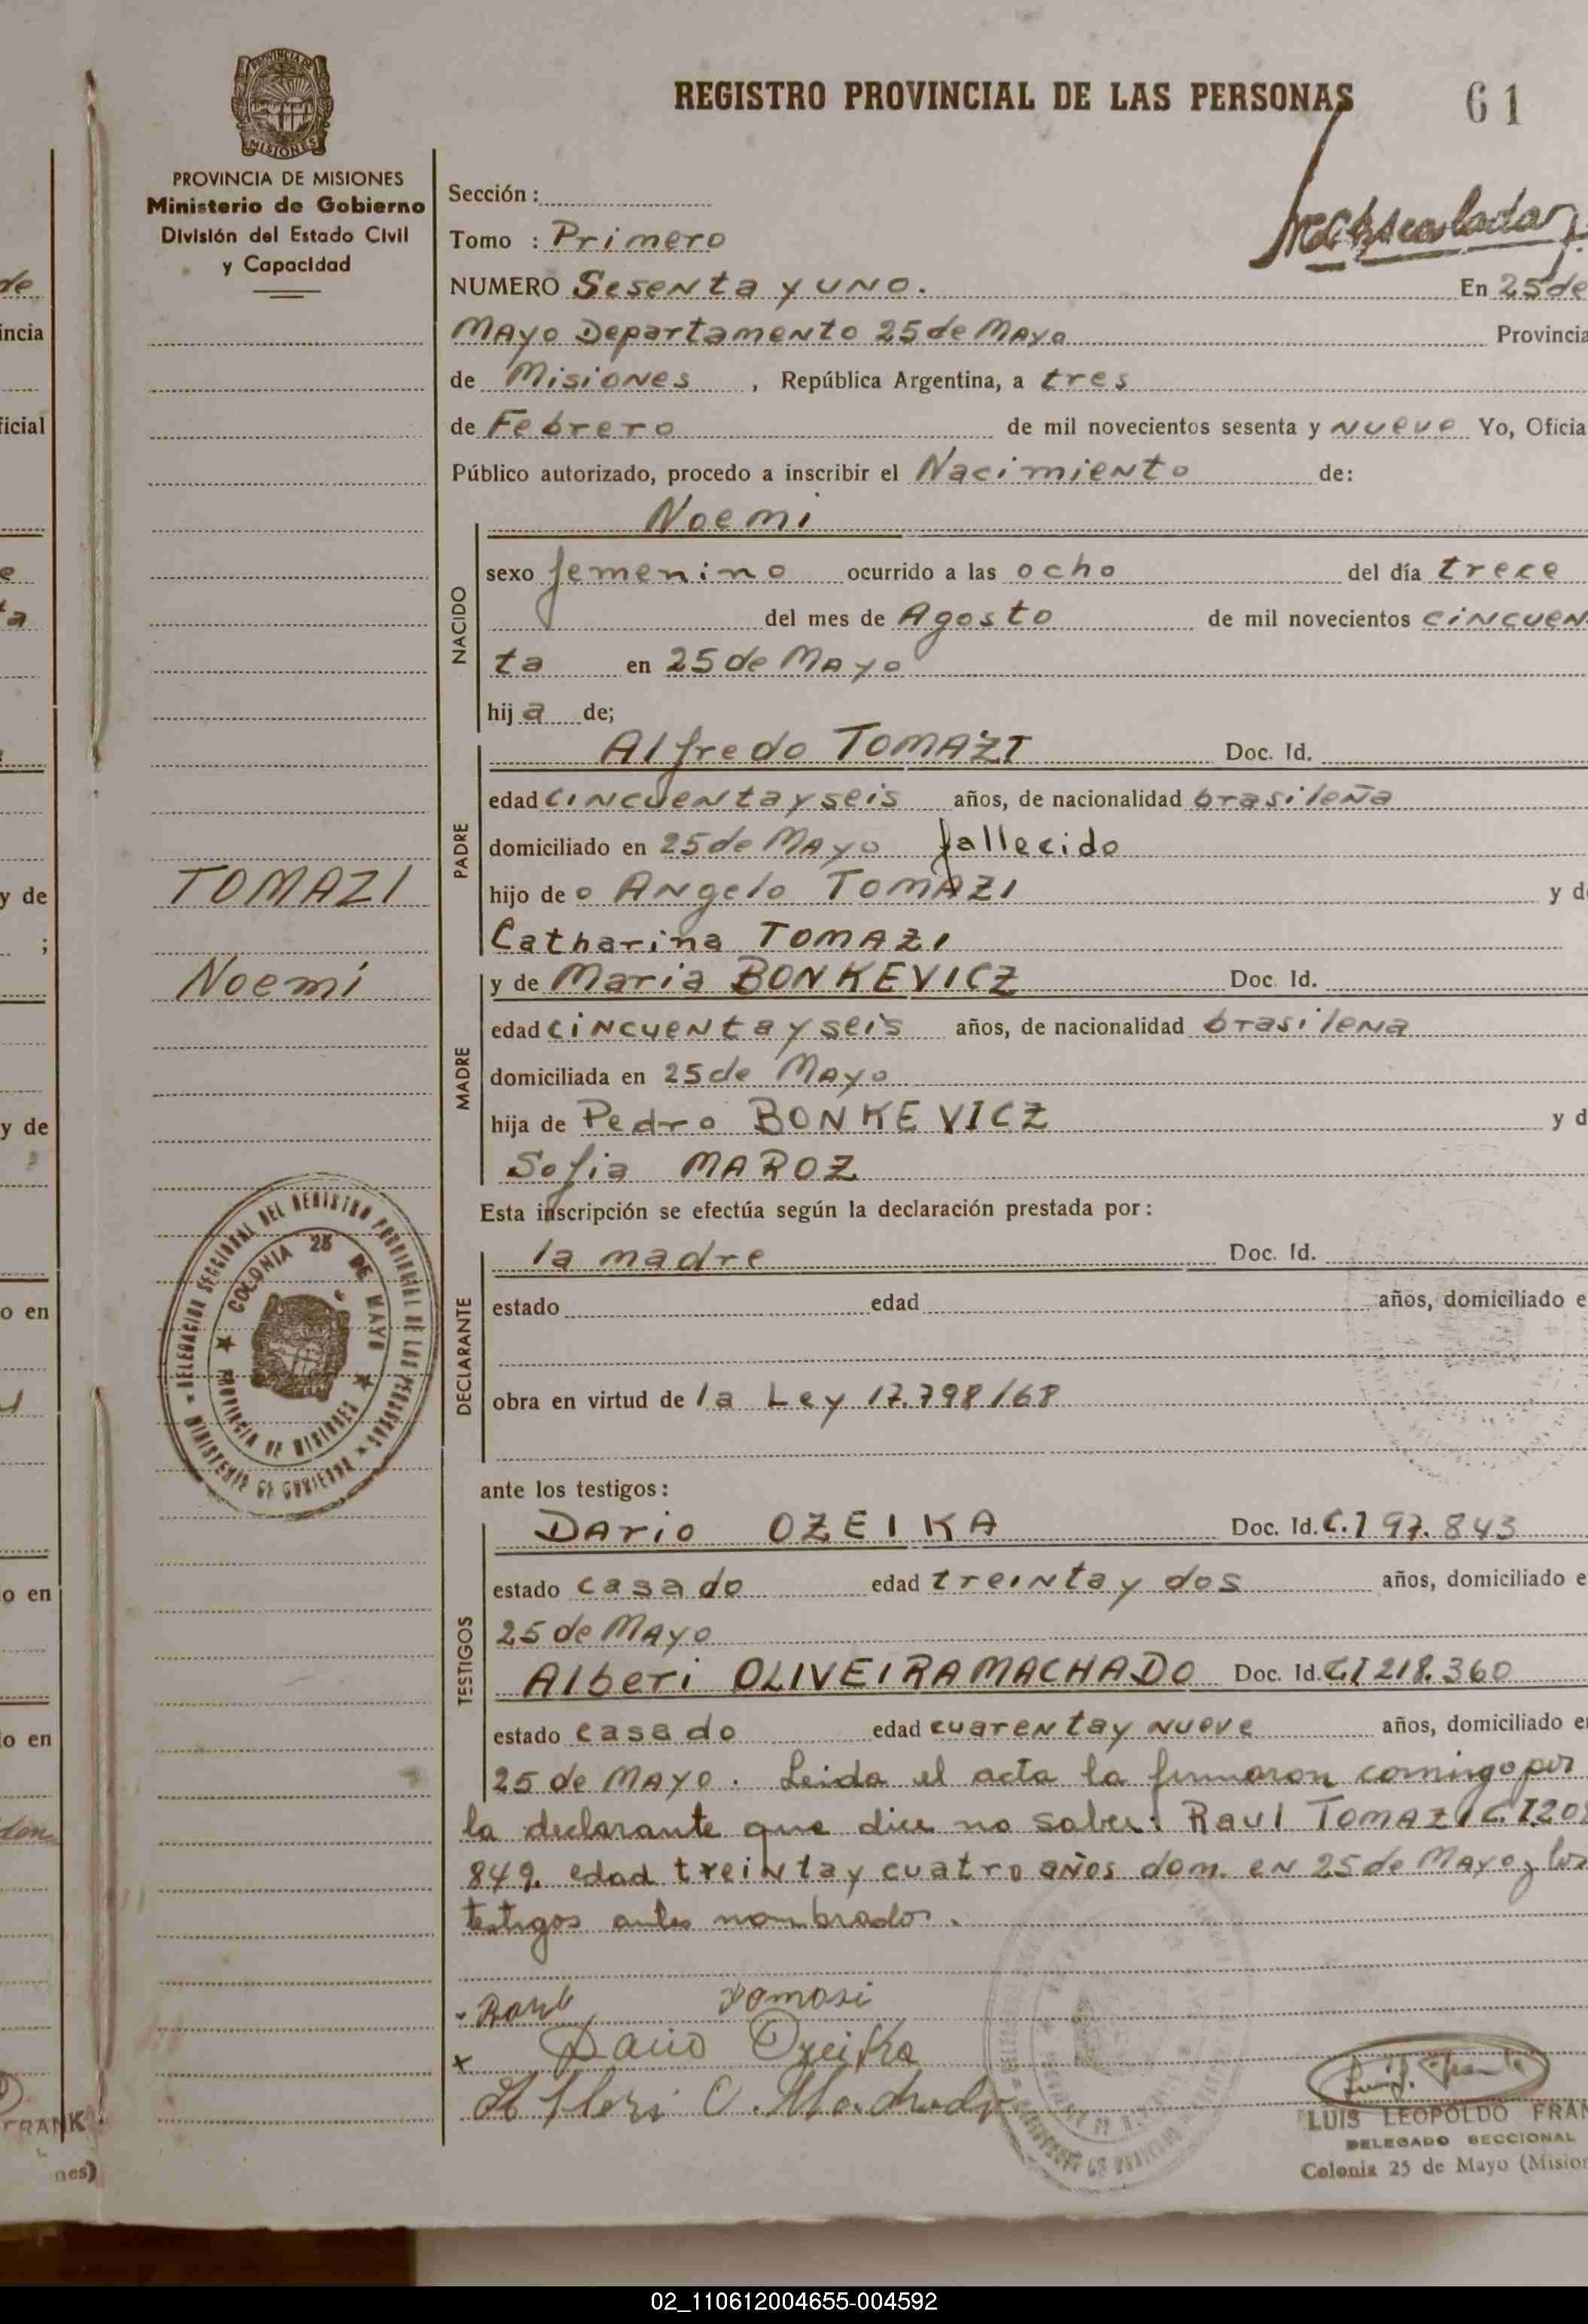 REGISTRO PROVINCIAL DE LAS PERSONAS
61
PROVINCIA DE
MISIONES
PROVINCIA DE MISIONES
Ministerio de Gobierno
División del Estado Civil
y Capacidad
Sección :
Tomo : Primero
NUMERO Sesenta y uno. En 25 de
Mayo Departamento 25 de Mayo Provincia
de Misiones , República Argentina, a tres
de Febrero de mil novecientos sesenta y nueve Yo, Oficia
Público autorizado, procedo a inscribir el Nacimiento de:
NACIDO
Noemi
sexo femenino ocurrido a las ocho del día trece
del mes de Agosto de mil novecientos cincuen
ta en 25 de Mayo
hij a de;
PADRE
Alfredo TOMAZI Doc. Id.
edad cincuenta y seis años, de nacionalidad brasileña
domiciliado en 25 de Mayo fallecido
hijo de o Angelo TOMAZI y d
Catharina TOMAZI
TOMAZI
Noemí
MADRE
y de Maria BONKEVICZ Doc. Id.
edad cincuenta y seis años, de nacionalidad brasilena
domiciliada en 25 de Mayo
hija de Pedro BONKEVICZ y d
Sofia MAROZ
Esta inscripción se efectúa según la declaración prestada por :
DECLARANTE
la madre Doc. Id.
estado edad años, domiciliado e
obra en virtud de la Ley 17.798/68
DELEGACION SECCIONAL DEL REGISTRO PROVINCIAL DE LAS PERSONAS
MINISTERIO DE GOBIERNO
COLONIA 25 DE MAYO
PROVINCIA DE MISIONES
ante los testigos :
TESTIGOS
Dario OZEIKA Doc. Id. C.I 97.843
estado casado edad treinta y dos años, domiciliado e
25 de Mayo
Alberi OLIVEIRA MACHADO Doc. Id. C.I 218.360
estado casado edad cuarenta y nueve años, domiciliado en
25 de Mayo. Leida el acta la firmaron comingo por
la declarante que dice no saber: Raul TOMAZI C.I.20
849. edad treinta y cuatro años dom. en 25 de Mayo y los
testigos antes nombrados.
Raul Tomasi
x Dario Ozeika
O. Machado
LUIS LEOPOLDO FRAN
DELEGADO SECCIONAL
Colonia 25 de Mayo (Mision
de
incia
ficial
e
ta
y de
;
y de
o en
o en
o en
FRANK
nes)
02_110612004655-004592